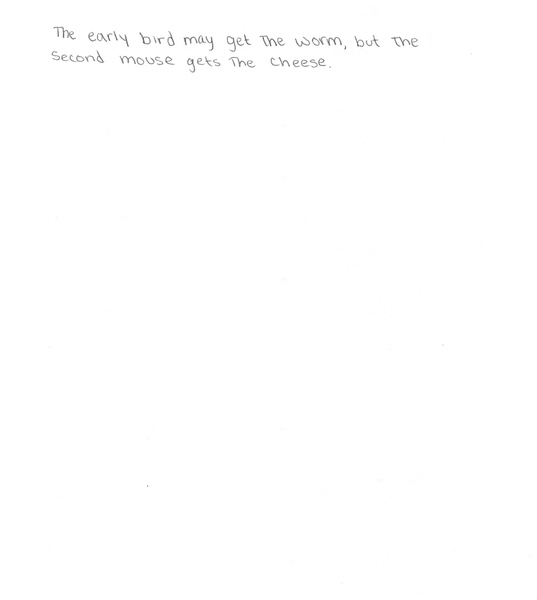 The early bird may get The worm, but The
Second mouse gets The cheese.